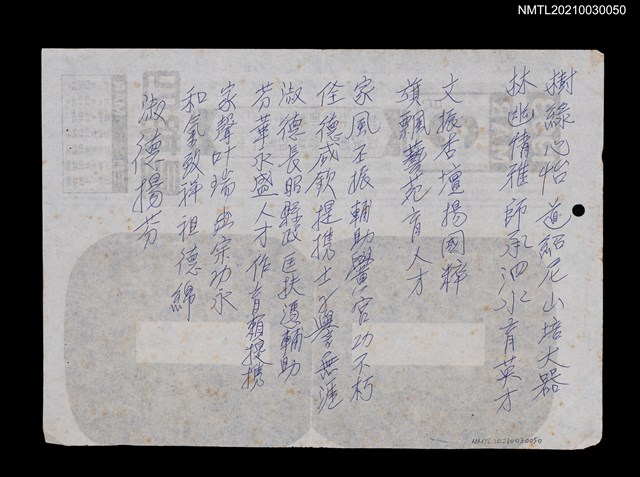 NMTL20210030050
樹綠心怡 道紹尼山培大器
林幽情雅 師承泗水育英才
文振杏壇揚國粹
旗飄藝苑育人才
家風丕振輔助黌宮功不朽
佺德咸欽提携士子學無涯
淑德長昭縣政匡扶憑輔助
芳華永盛人才作育賴提携
家聲叶瑞 宗功永
和氣致祥祖德綿
淑德揚芬
NMTL20210030050